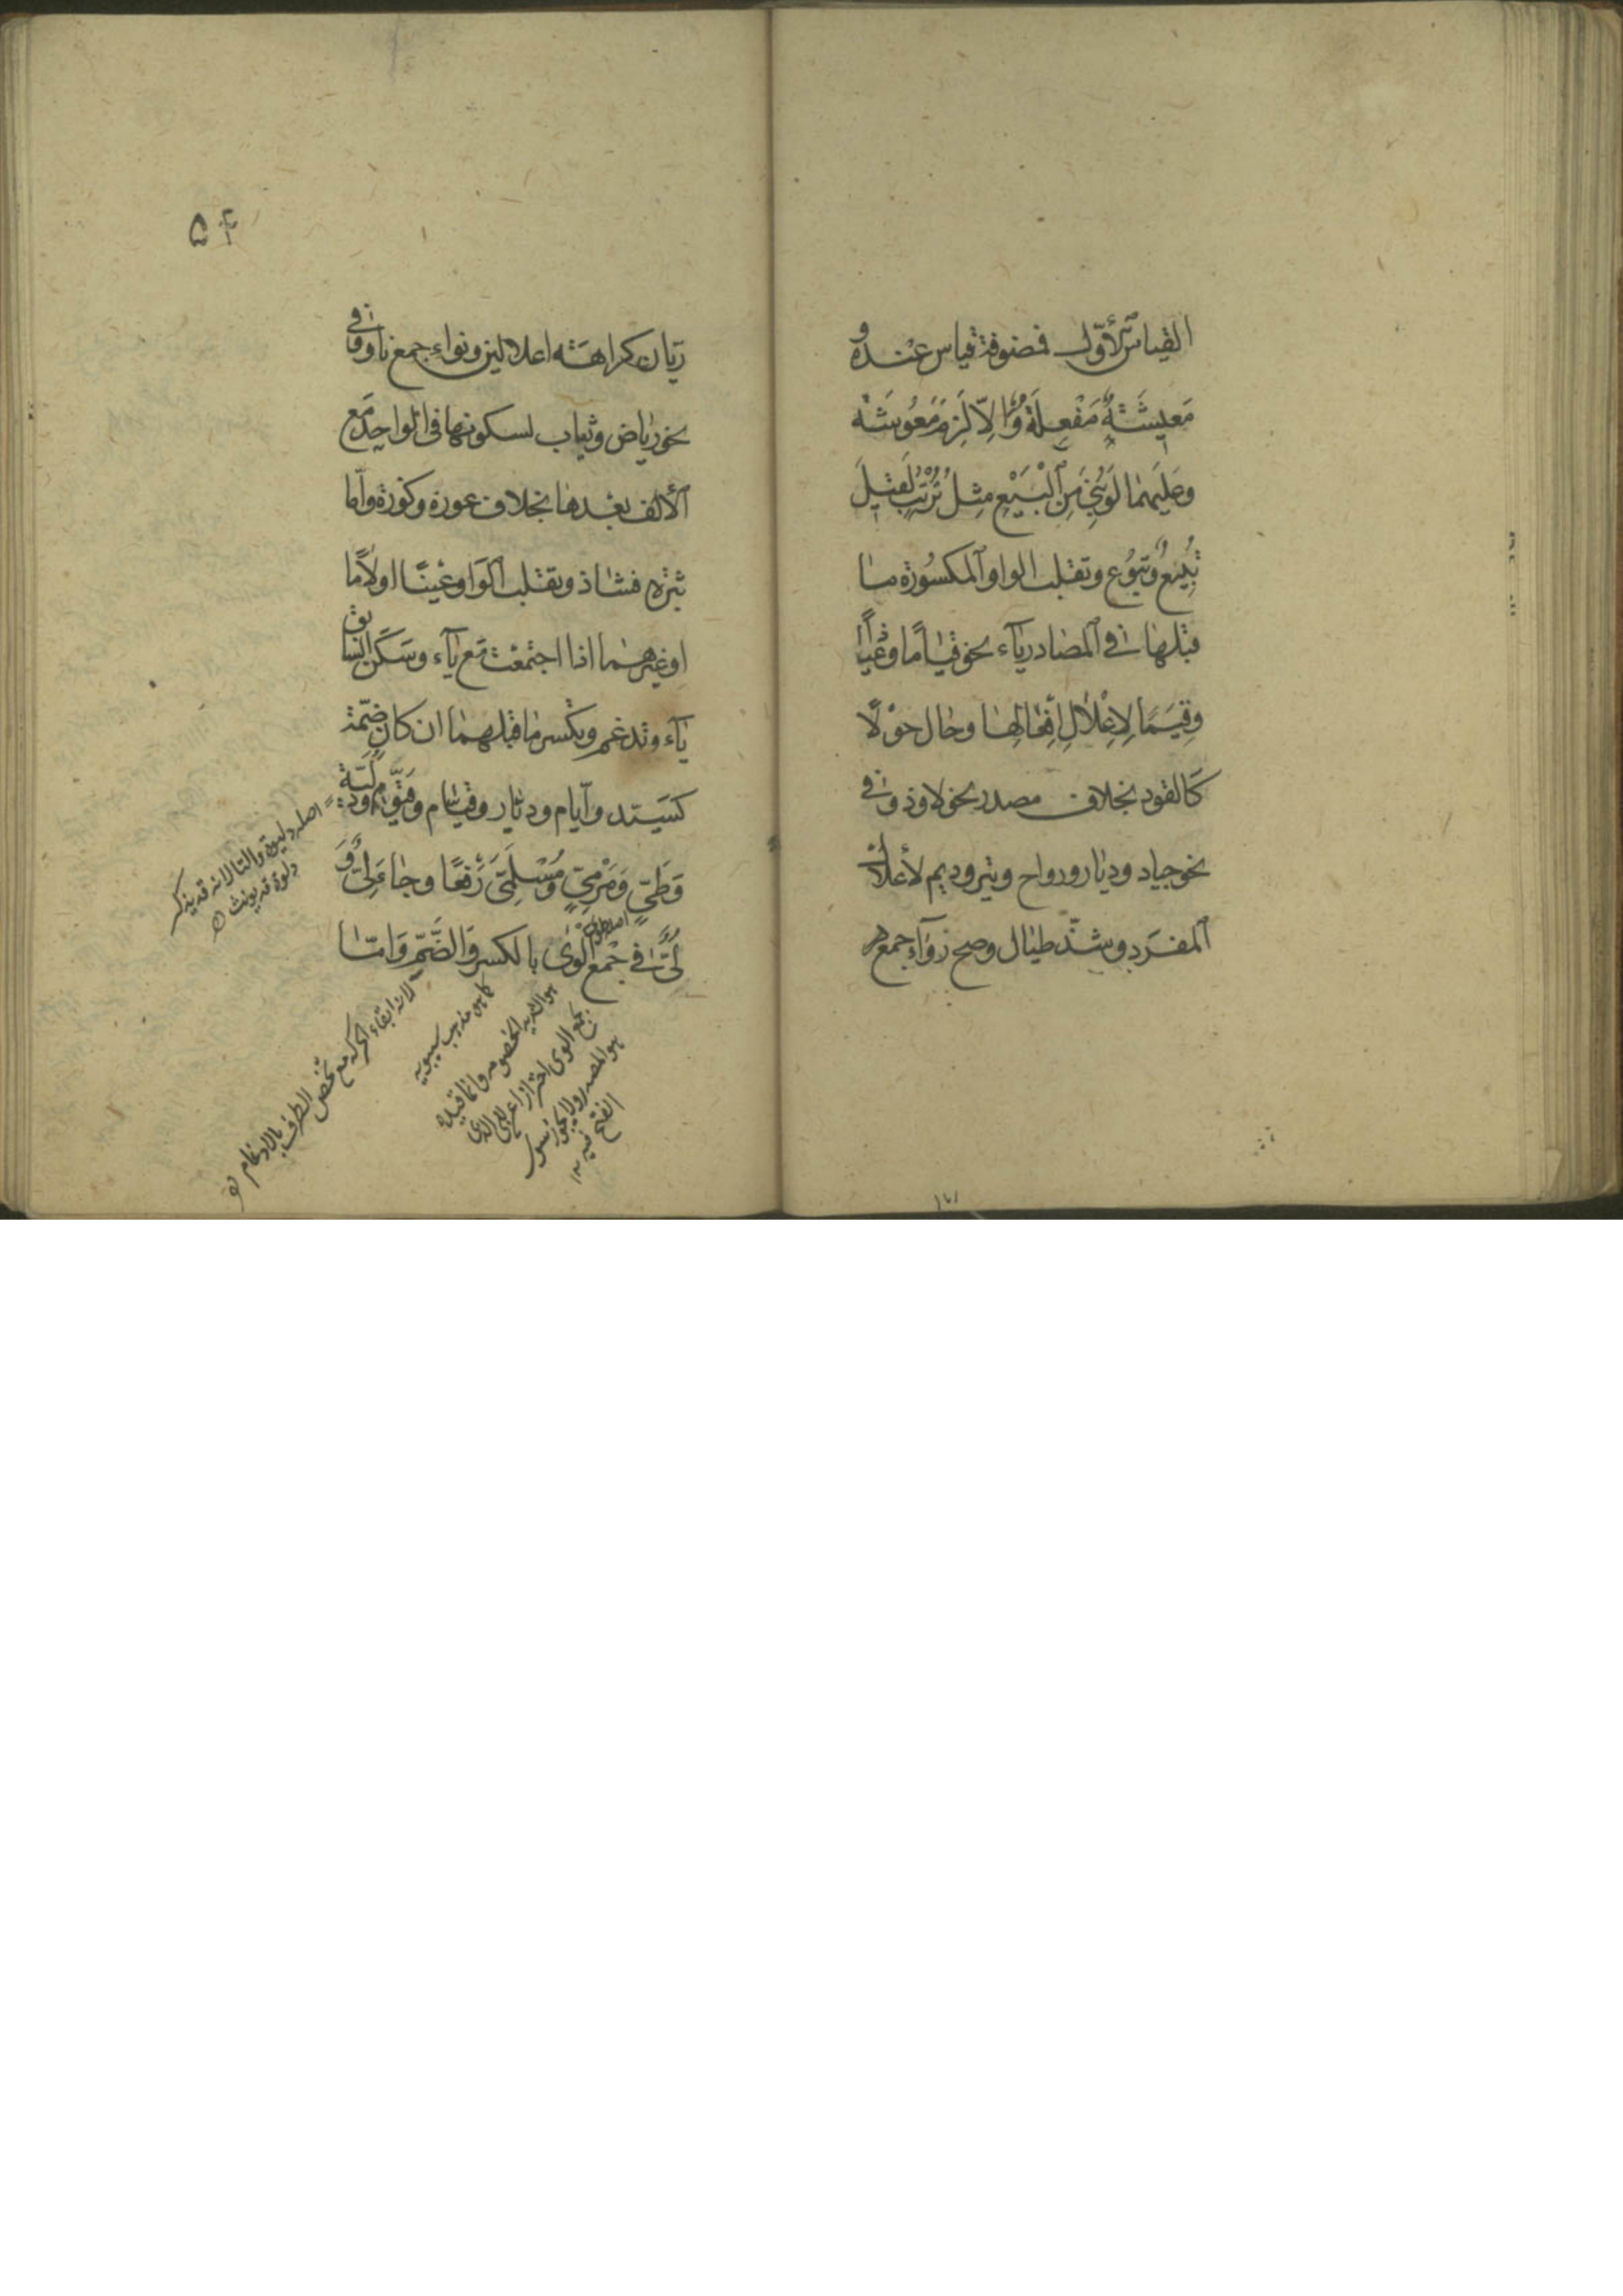 القياس الأول فمضوفة قياس عنده و
معيشة مفعلة وإلا لزم معوشة
وعليهما لو بني من البيع مثل ترتب لقيل
تبيع وتبوع وتقلب الواو المكسورة ما
قبلها في المصادر ياء نحو قياما وعياذا
وقيما لإعلال أفعالها وحال حولا
كالقود بخلاف مصدر نحو لاوذ وفي
نحو جياد وديار ورواح وتير وديم لأعلال
المفرد وشذ طيال وصح رواء جمع
ريان كراهة اعلالين ونواء جمع ناو وفي
نحو رياض وثياب لسكونها في الواحد مع
الألف بعدها بخلاف عودة وكوزة واما
ثيرة فشاذ وتقلب الواو عينا او لاما
او غيرهما اذا اجتمعت مع ياء وسكن السابق
ياء وتدغم ويكسر ما قبلهما ان كان ضمة
كسيد وأيام وديار وقيام وقيوم ودلية
وطي ومرمي ومسلمي رفعا وجاء لي و
لي في جمع ألوى بالكسر والضم واما
اصله دليوة والتا لانه قد يذكر
دلوة قد يونث
اصله طوي
كما هو مذهب سيبويه
هو الشديد الخصومة وانما قيده
بجمع الوى احترازا عن لي الذي
هو المصدر ولا يجوز سوى
الفتح فيه ١٢